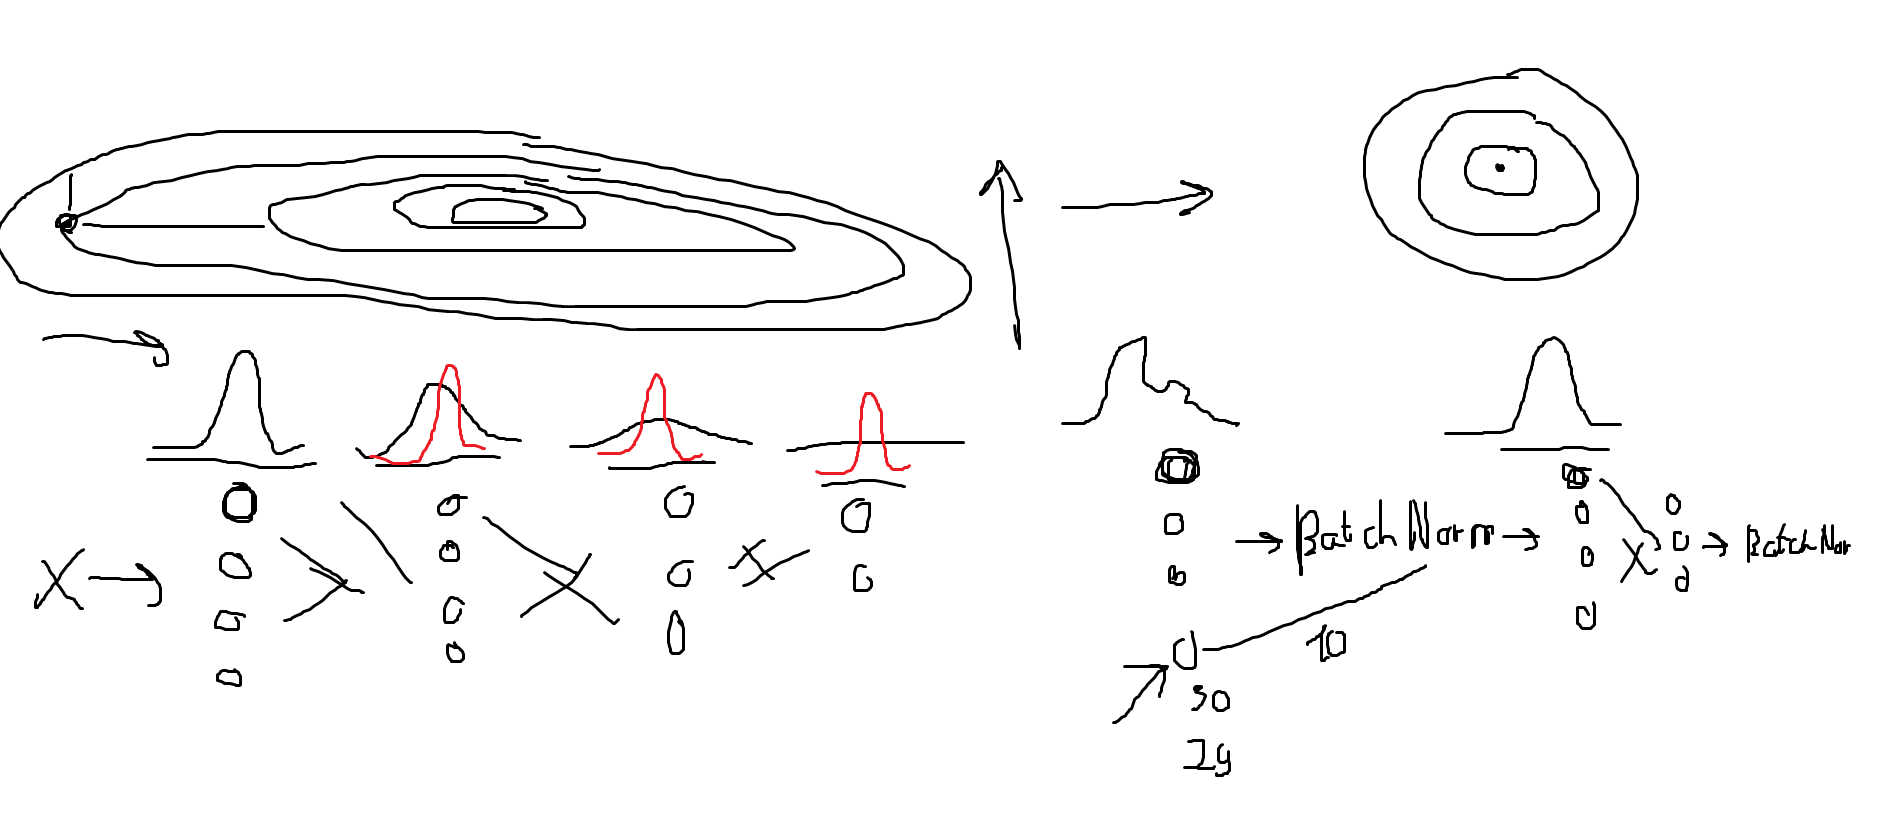 X → → BatchNorm → → BatchNor
10
30